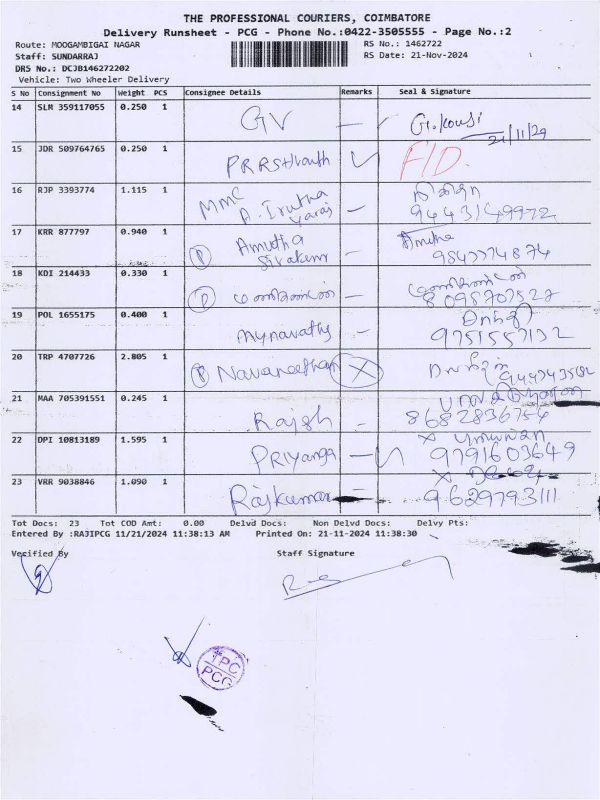 THE PROFESSIONAL COURIERS, COIMBATORE
Delivery Runsheet - PCG - Phone No.:0422-3505555 - Page No.:2
Route: MOOGAMBIGAI NAGAR
RS No.: 1462722
Staff: SUNDARRAJ
RS Date: 21-Nov-2024
DRS No.: DCJB146272202
Vehicle: Two Wheeler Delivery
S No Consignment No Weight PCS Consignee Details Remarks Seal & Signature
14 SLM 359117055 0.250 1 GV
21/11/24
15 JDR 509764765 0.250 1 F/D.
16 RJP 3393774 1.115 1 MMC
A. Irutha
yaraj 9443149972
17 KRR 877797 0.940 1 Amutha Amutha
Sivakumr 9847774874
18 KDI 214433 0.330 1 மணிகண்டன் மணிகண்டன்
8095707527
19 POL 1655175 0.400 1 mynavathy
9751557132
20 TRP 4707726 2.805 1 Navaneethan X
21 MAA 705391551 0.245 1 Rajesh 8682836754
22 DPI 10813189 1.595 1 PRIYanga 9791603649
23 VRR 9038846 1.090 1 Rajkumar 9629793111
Tot Docs: 23 Tot COD Amt: 0.00 Delvd Docs: Non Delvd Docs: Delvy Pts:
Entered By :RAJIPCG 11/21/2024 11:38:13 AM Printed On: 21-11-2024 11:38:30
Verified By Staff Signature
TPC
PCG